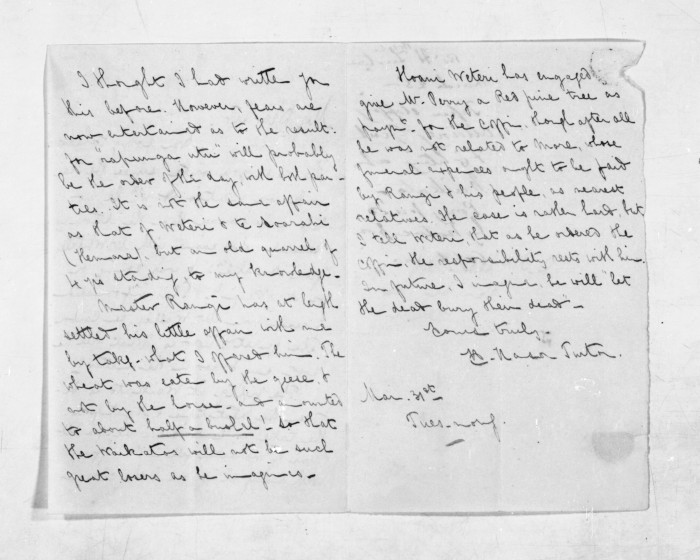 I thought I had written you
this before. However, fears are
now entertained as to the result.
for "rapunga utu" will probably
be the order of the day, with both par-
ties. It is not the same affair
as that of Weteri & te
(Hemara), but an old quarrel of
4 yrs standing, to my knowledge.
Master Rangi has at length
settled his little affair with me
by taking what I offered him. The
wheat was eaten by the geese, &
not by the horse, and amounted
to about half a bushel! so that
the Waikatos will not be such
great losers as he imagines.
Hoani Weteri has engaged
give Mr. Penny a Red pine tree as
paymt. for the coffin, though after all
he was not related to More, whose
funeral expenses ought to be paid
by Rangi & his people, as nearest
relatives. The case is rather hard, but
I tell Weteri, that as he ordered the
coffin, the responsibility rests with him.
In future, I imagine, he will "let
the dead bury their dead"
Yours truly,
H. Hanson Turton.
Mar. 31st
Tues. morng.